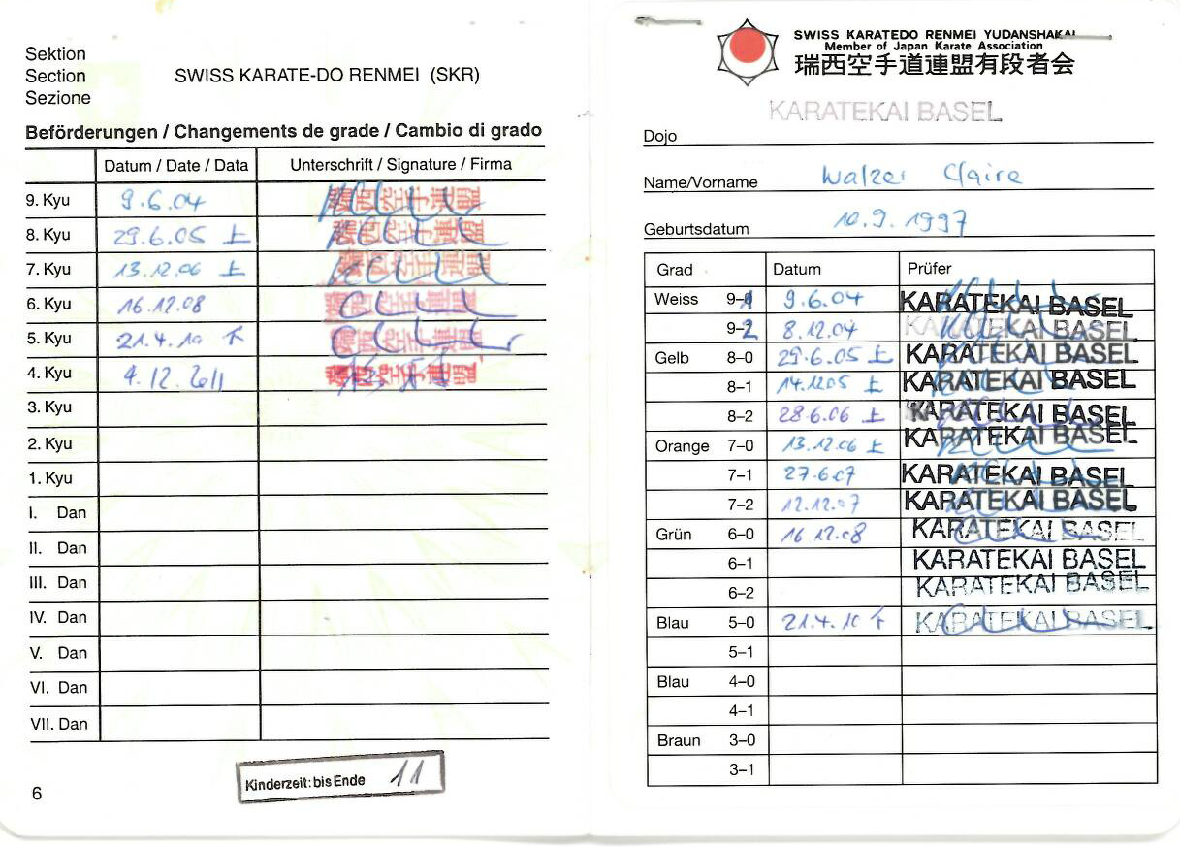 Sektion
Section
Sezione
SWISS KARATE-DO RENMEI (SKR)
Beförderungen / Changements de grade / Cambio di grado
Datum / Date / Data Unterschrift / Signature / Firma
9. Kyu 9.6.04
8. Kyu 29.6.05 上
7. Kyu 13.12.06 上
6. Kyu 16.12.08
5. Kyu 21.4.10 下
4. Kyu 4.12.2011
3. Kyu
2. Kyu
1. Kyu
I. Dan
II. Dan
III. Dan
IV. Dan
V. Dan
VI. Dan
VII. Dan
Kinderzeit: bis Ende 11
6
SWISS KARATEDO RENMEI YUDANSHAKAI
Member of Japan Karate Association
瑞西空手道連盟有段者会
KARATEKAI BASEL
Dojo
Name/Vorname Walzer Claire
Geburtsdatum 10.9.1997
Grad Datum Prüfer
Weiss 9-1 9.6.04 KARATEKAI BASEL
9-2 8.12.04 KARATEKAI BASEL
Gelb 8-0 29.6.05 上 KARATEKAI BASEL
8-1 14.12.05 上 KARATEKAI BASEL
8-2 28.6.06 上 KARATEKAI BASEL
Orange 7-0 13.12.06 上 KARATEKAI BASEL
7-1 27.6.07 KARATEKAI BASEL
7-2 12.12.07 KARATEKAI BASEL
Grün 6-0 16.12.08 KARATEKAI BASEL
6-1 KARATEKAI BASEL
6-2 KARATEKAI BASEL
Blau 5-0 21.4.10 下 KARATEKAI BASEL
5-1
Blau 4-0
4-1
Braun 3-0
3-1